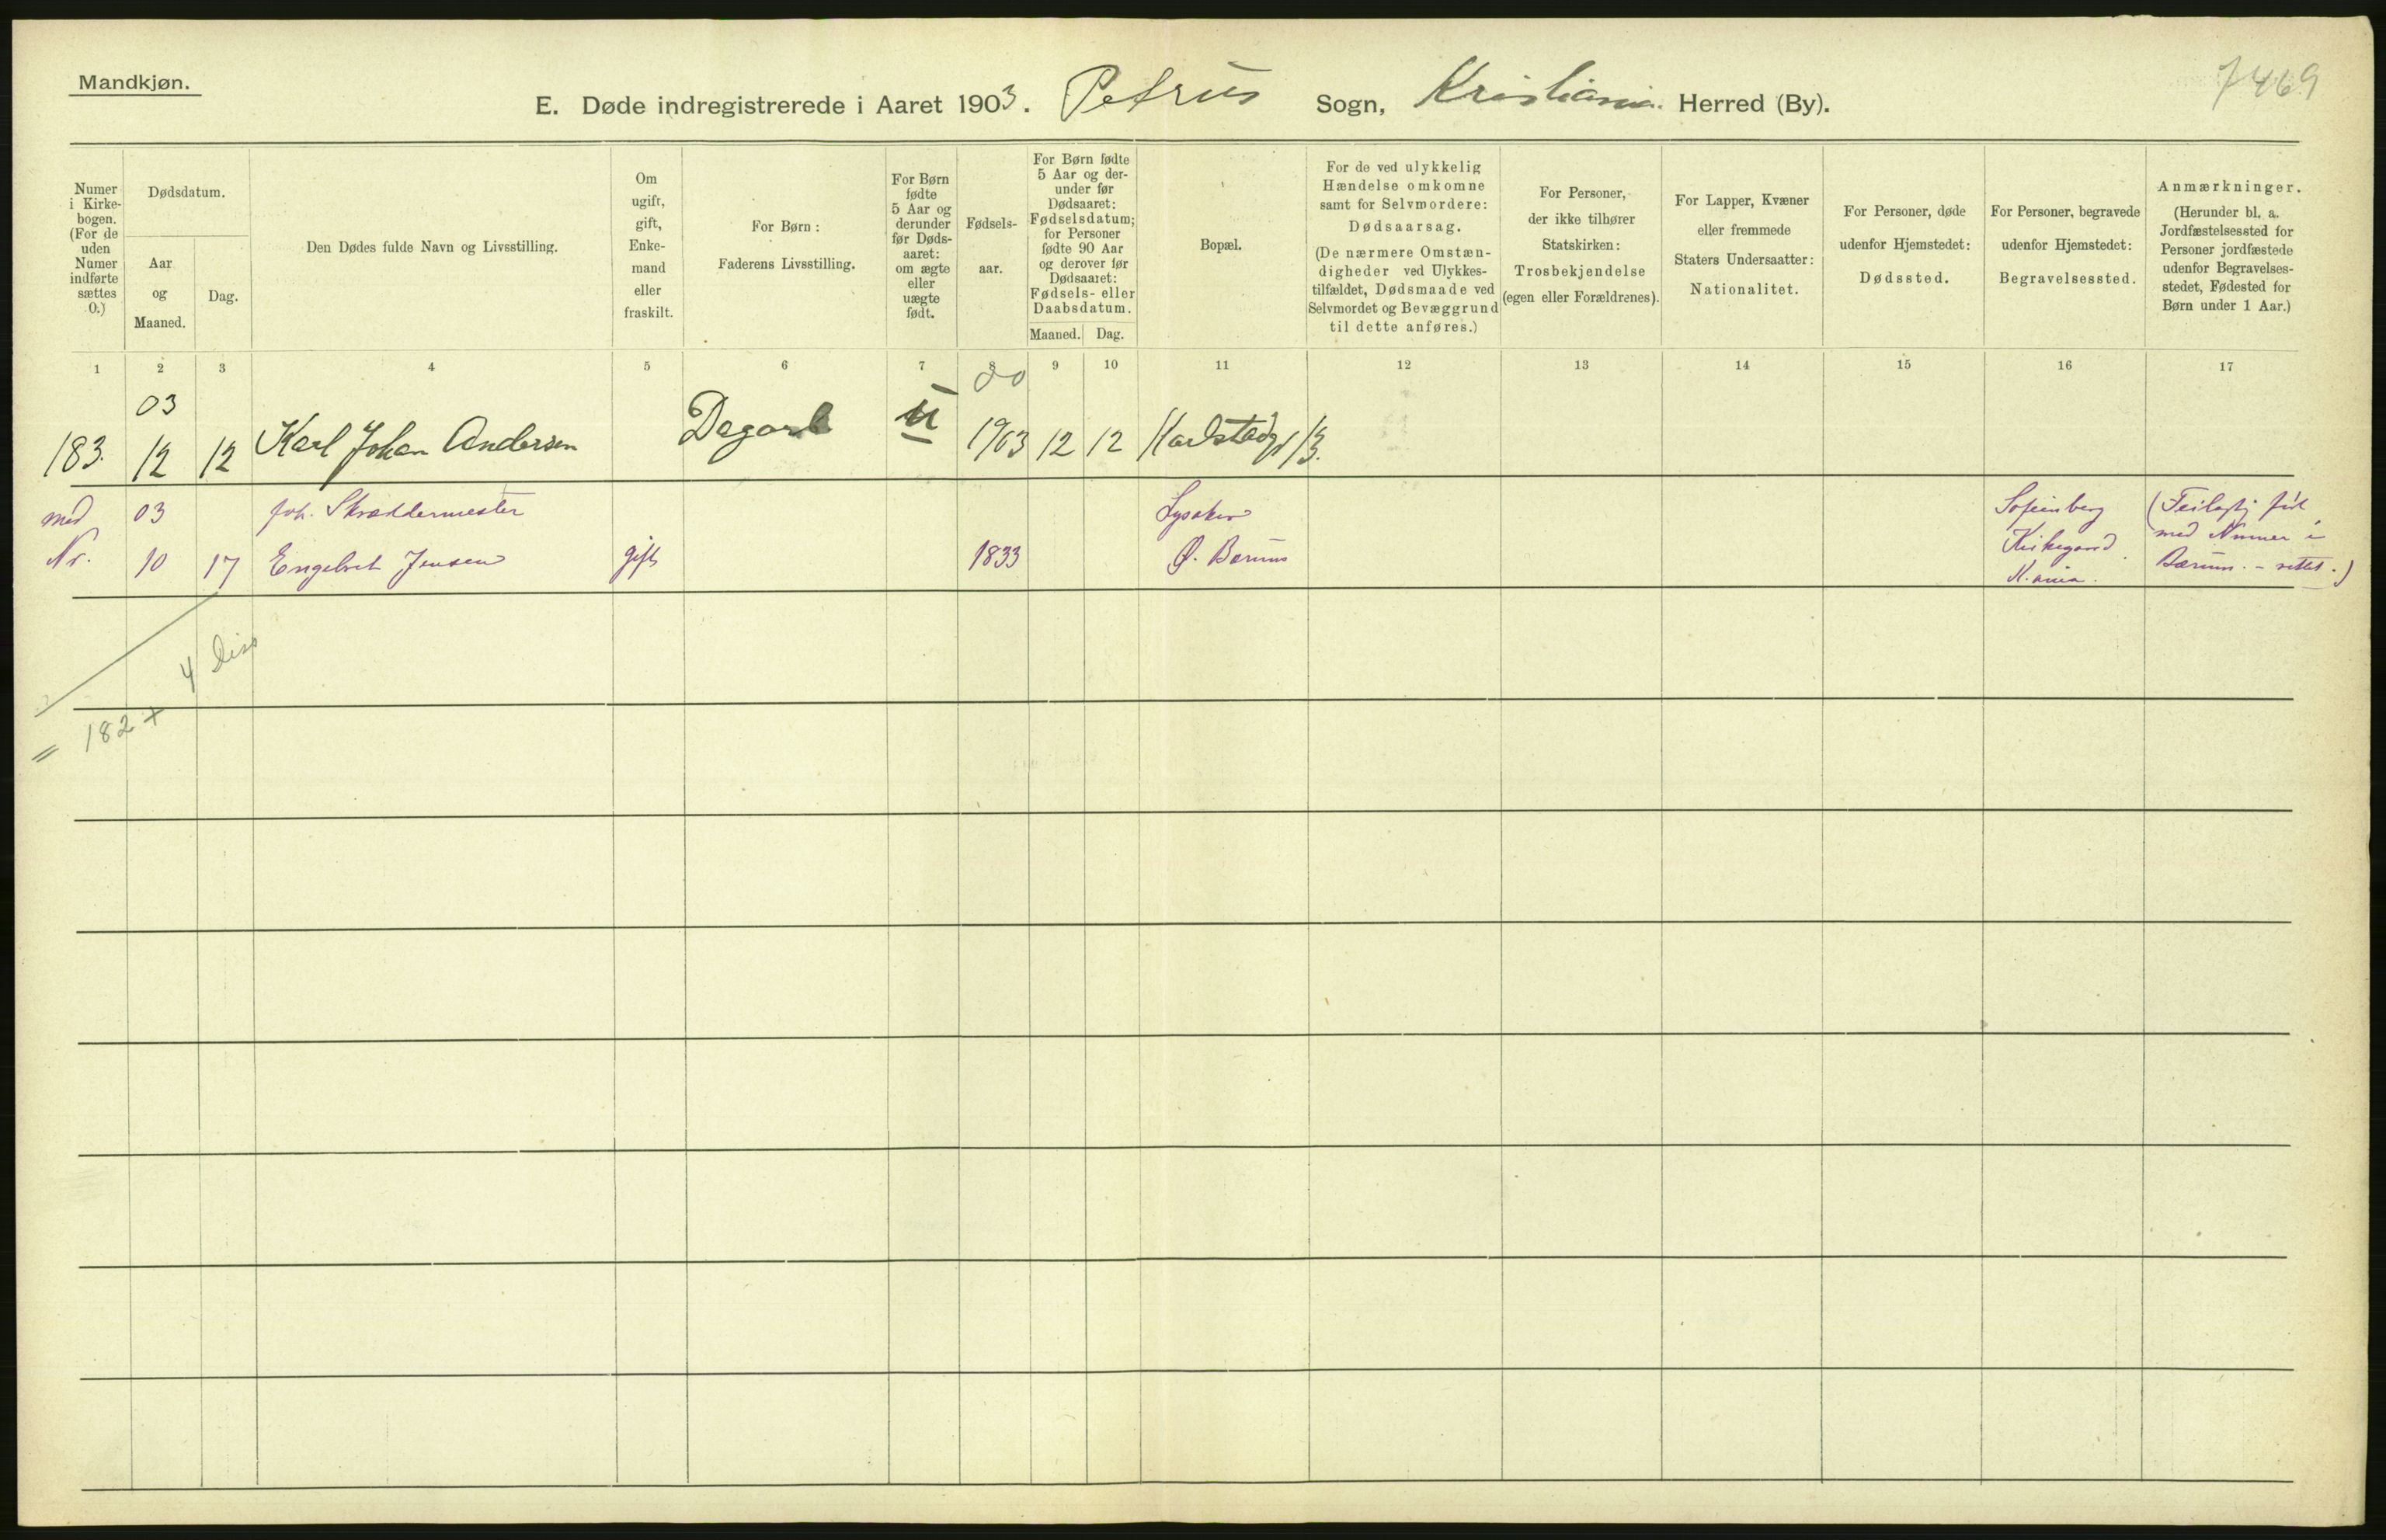 Mandkjøn.
7469
E. Døde indregistrerede i Aaret 1903. Petrus Sogn, Kristiania Herred (By).
Numer
i Kirke-
bogen.
(For de
uden
Numer
indførte
sættes
0.)
Dødsdatum.
Aar
og
Maaned.
Dag.
Den Dødes fulde Navn og Livsstilling.
Om
ugift,
gift,
Enke-
mand
eller
fraskilt.
For Børn:
Faderens Livsstilling.
For Børn
fødte
5 Aar og
derunder
før Døds-
aaret:
om ægte
eller
uægte
født.
Fødsels-
aar.
For Børn fødte
5 Aar og der-
under før
Dødsaaret:
Fødselsdatum;
for Personer
fødte 90 Aar
og derover før
Dødsaaret:
Fødsels- eller
Daabsdatum.
Maaned. Dag.
Bopæl.
For de ved ulykkelig
Hændelse omkomne
samt for Selvmordere:
Dødsaarsag.
(De nærmere Omstæn-
digheder ved Ulykkes-
tilfældet, Dødsmaade ved
Selvmordet og Bevæggrund
til dette anføres.)
For Personer,
der ikke tilhører
Statskirken:
Trosbekjendelse
(egen eller Forældrenes).
For Lapper, Kvæner
eller fremmede
Staters Undersaatter:
Nationalitet.
For Personer, døde
udenfor Hjemstedet:
Dødssted.
For Personer, begravede
udenfor Hjemstedet:
Begravelsessted.
Anmærkninger.
(Herunder bl. a.
Jordfæstelsessted for
Personer jordfæstede
udenfor Begravelses-
stedet, Fødested for
Børn under 1 Aar.)
1 2 3 4 5 6 7 8 9 10 11 12 13 14 15 16 17
03
183. 12 12 Karl Johan Andersen Dagarb u 1903 12 12 Karlstadgd 13.
03 Skræddermester Lysaker Sofienberg
Nr. 10 17 Engebret Jensen gift 1833 Ø. Bærum Kirkegaard
K.ania.
med Numer i
Bærum. - rettet.)
4
= 182 +